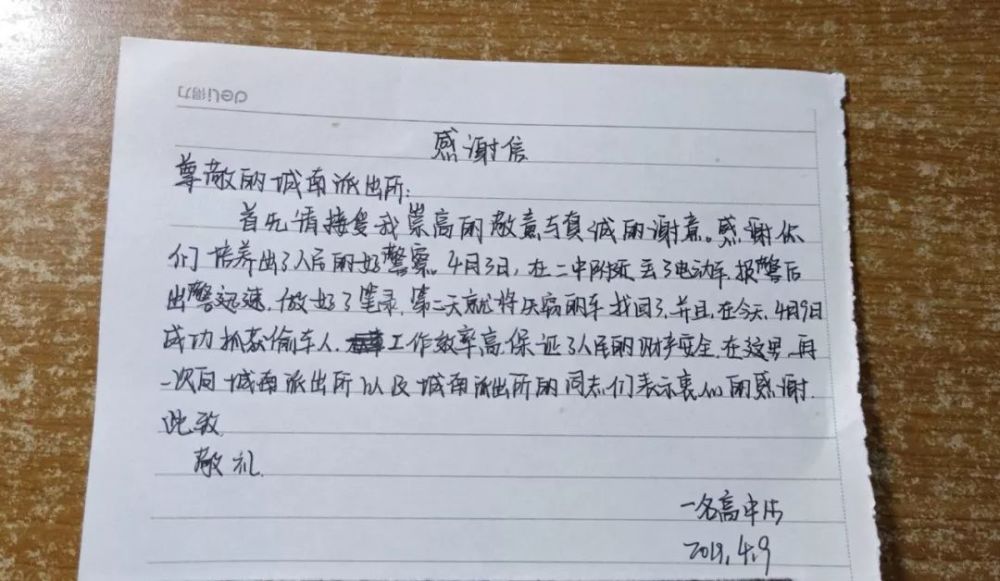 deli得力
感谢信
尊敬的城南派出所:
首先请接受我崇高的敬意与真诚的谢意。感谢你
们培养出了人民的好警察。4月3日,在二中附近丢了电动车.报警后
出警迅速.做好了笔录.第二天就将失窃的车找回了,并且,在今天.4月9日
成功抓获偷车人.工作效率高.保证了人民的财产安全.在这里.再
一次向城南派出所以及城南派出所的同志们表示衷心的感谢.
此致
敬礼.
一名高中生
2019.4.9